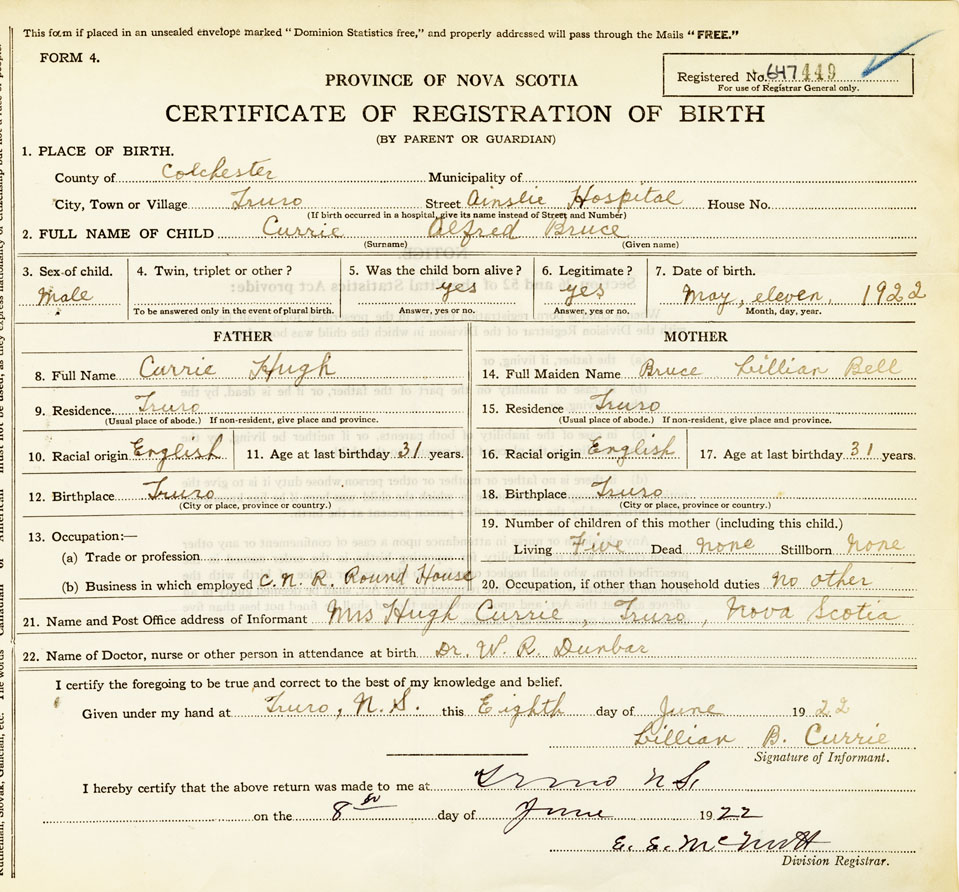 This form if placed in an unsealed envelope marked "Dominion Statistics free," and properly addressed will pass through the Mails "FREE."
FORM 4.
PROVINCE OF NOVA SCOTIA
Registered No. 647449
For use of Registrar General only.
CERTIFICATE OF REGISTRATION OF BIRTH
(BY PARENT OR GUARDIAN)
1. PLACE OF BIRTH.
County of Colchester Municipality of
City, Town or Village Truro Street Ainslie Hospital House No.
(If birth occurred in a hospital, give its name instead of Street and Number)
2. FULL NAME OF CHILD Currie Alfred Bruce
(Surname) (Given name)
3. Sex of child. Male
4. Twin, triplet or other?
To be answered only in the event of plural birth.
5. Was the child born alive? yes
Answer, yes or no.
6. Legitimate? yes
Answer, yes or no.
7. Date of birth.
May, eleven, 1922
Month, day, year.
FATHER
8. Full Name Currie Hugh
9. Residence Truro
(Usual place of abode.) If non-resident, give place and province.
10. Racial origin English 11. Age at last birthday 31 years.
12. Birthplace Truro
(City or place, province or country.)
13. Occupation:—
(a) Trade or profession
(b) Business in which employed C.N.R. Round House
MOTHER
14. Full Maiden Name Bruce Lillian Bell
15. Residence Truro
(Usual place of abode.) If non-resident, give place and province.
16. Racial origin English 17. Age at last birthday 31 years.
18. Birthplace Truro
(City or place, province or country.)
19. Number of children of this mother (including this child.)
Living Five Dead none Stillborn None
20. Occupation, if other than household duties no other
21. Name and Post Office address of Informant Mrs Hugh Currie, Truro, Nova Scotia
22. Name of Doctor, nurse or other person in attendance at birth Dr. W. R. Dunbar
I certify the foregoing to be true and correct to the best of my knowledge and belief.
Given under my hand at Truro, N.S. this Eighth day of June 1922
Lillian B. Currie
Signature of Informant.
I hereby certify that the above return was made to me at Truro N.S.
on the 8 day of June 1922
E. E. McNutt
Division Registrar.